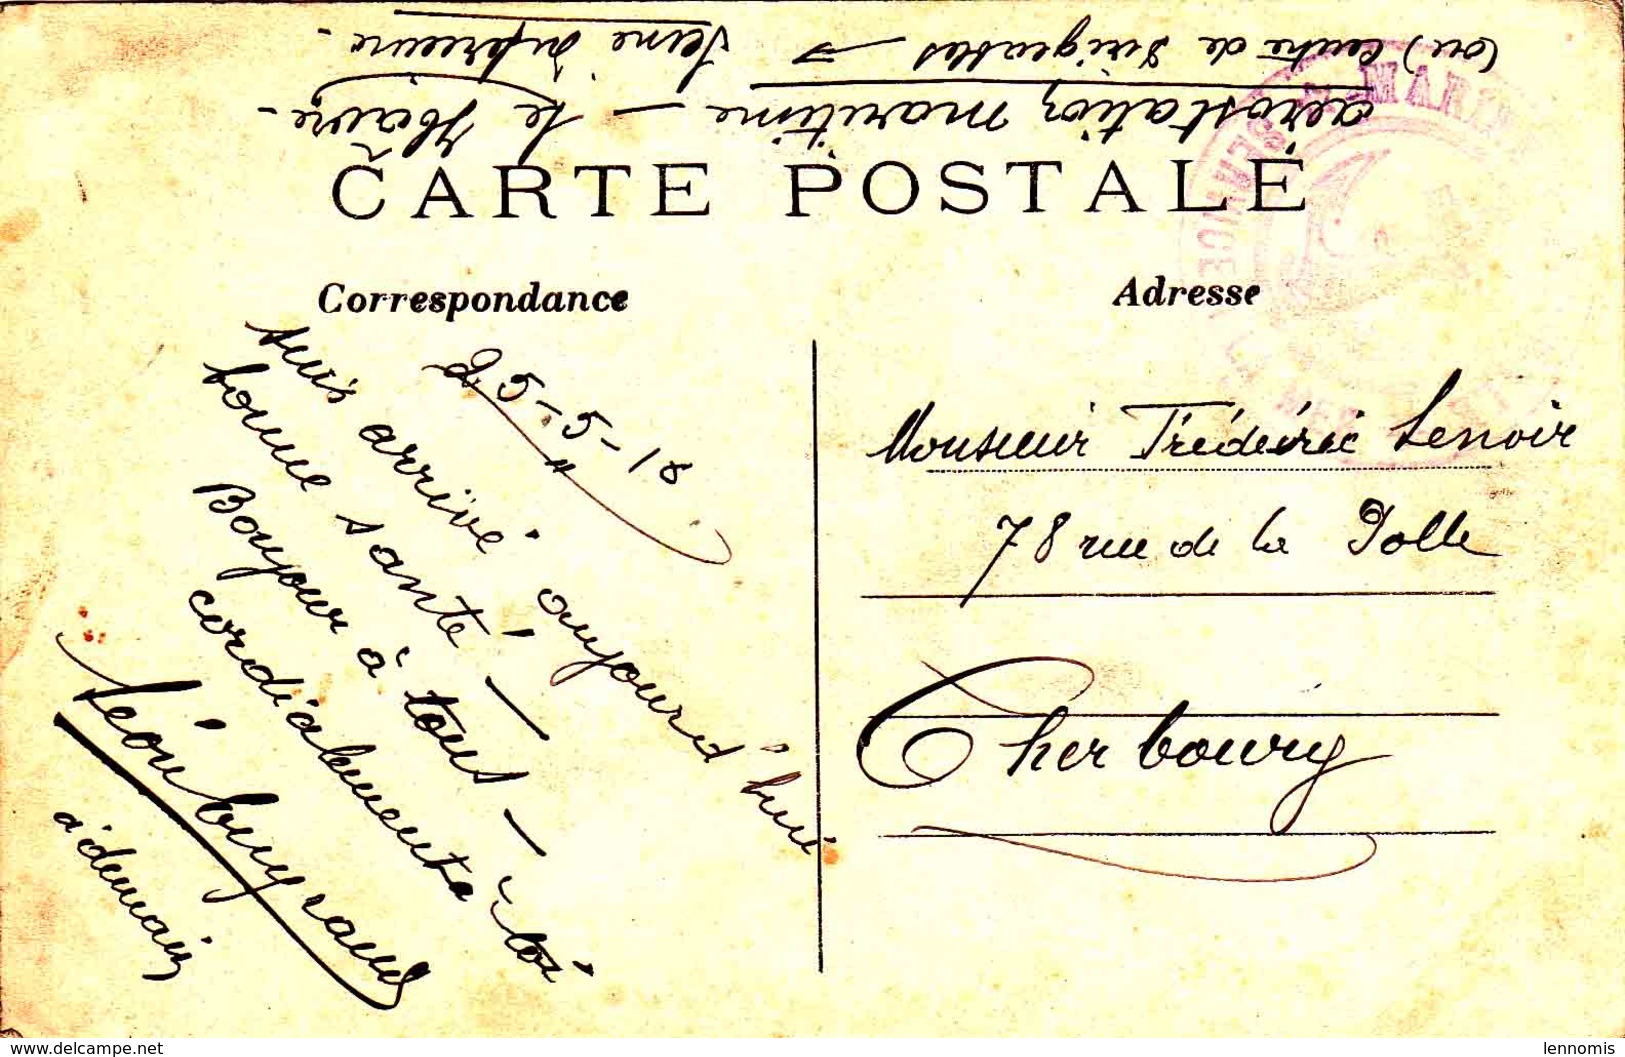 aérostation maritime — Le Hâvre -
(ou) Centre de dirigeables → Seine Inférieure -
CARTE POSTALE
Correspondance
Adresse
25-5-18
suis arrivé aujourd'hui
bonne santé —
Boujour à tous —
cordialement à toi
Léon
à demain
Monsieur Frédéric Lenoir
78 rue de la Polle
Cherbourg
MARINE
SERVICE
www.delcampe.net
lennomis